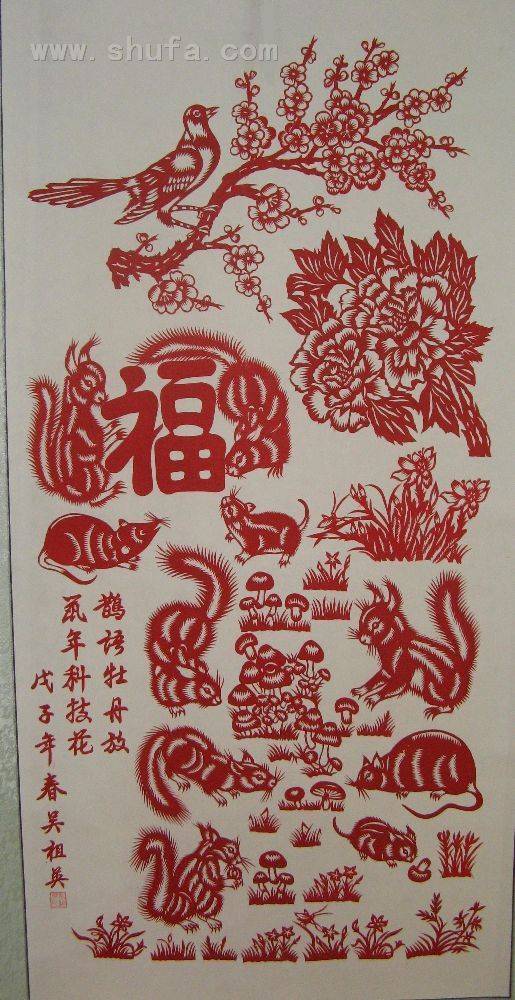 www.shufa.com
福
鹊语牡丹放
鼠年科技花
戊子年春吴祖英